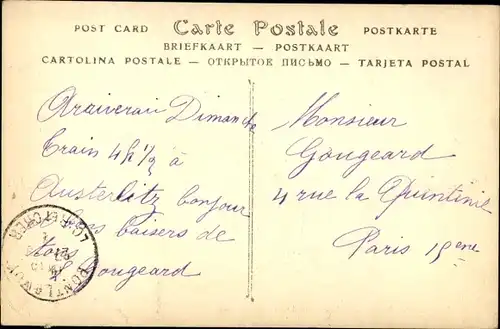 POST CARD Carte Postale POSTKARTE
BRIEFKAART — POSTKAART
CARTOLINA POSTALE — ОТКРЫТОЕ ПИСЬМО — TARJETA POSTAL
Arriverai Dimanche
train 4h 1/2 à
Austerlitz bonjour
bons baisers de
tous
Gougeard
Monsieur
Gougeard
4 rue la Quintinie
Paris 15eme
LOIR-ET-CHER
PONTLEVOY